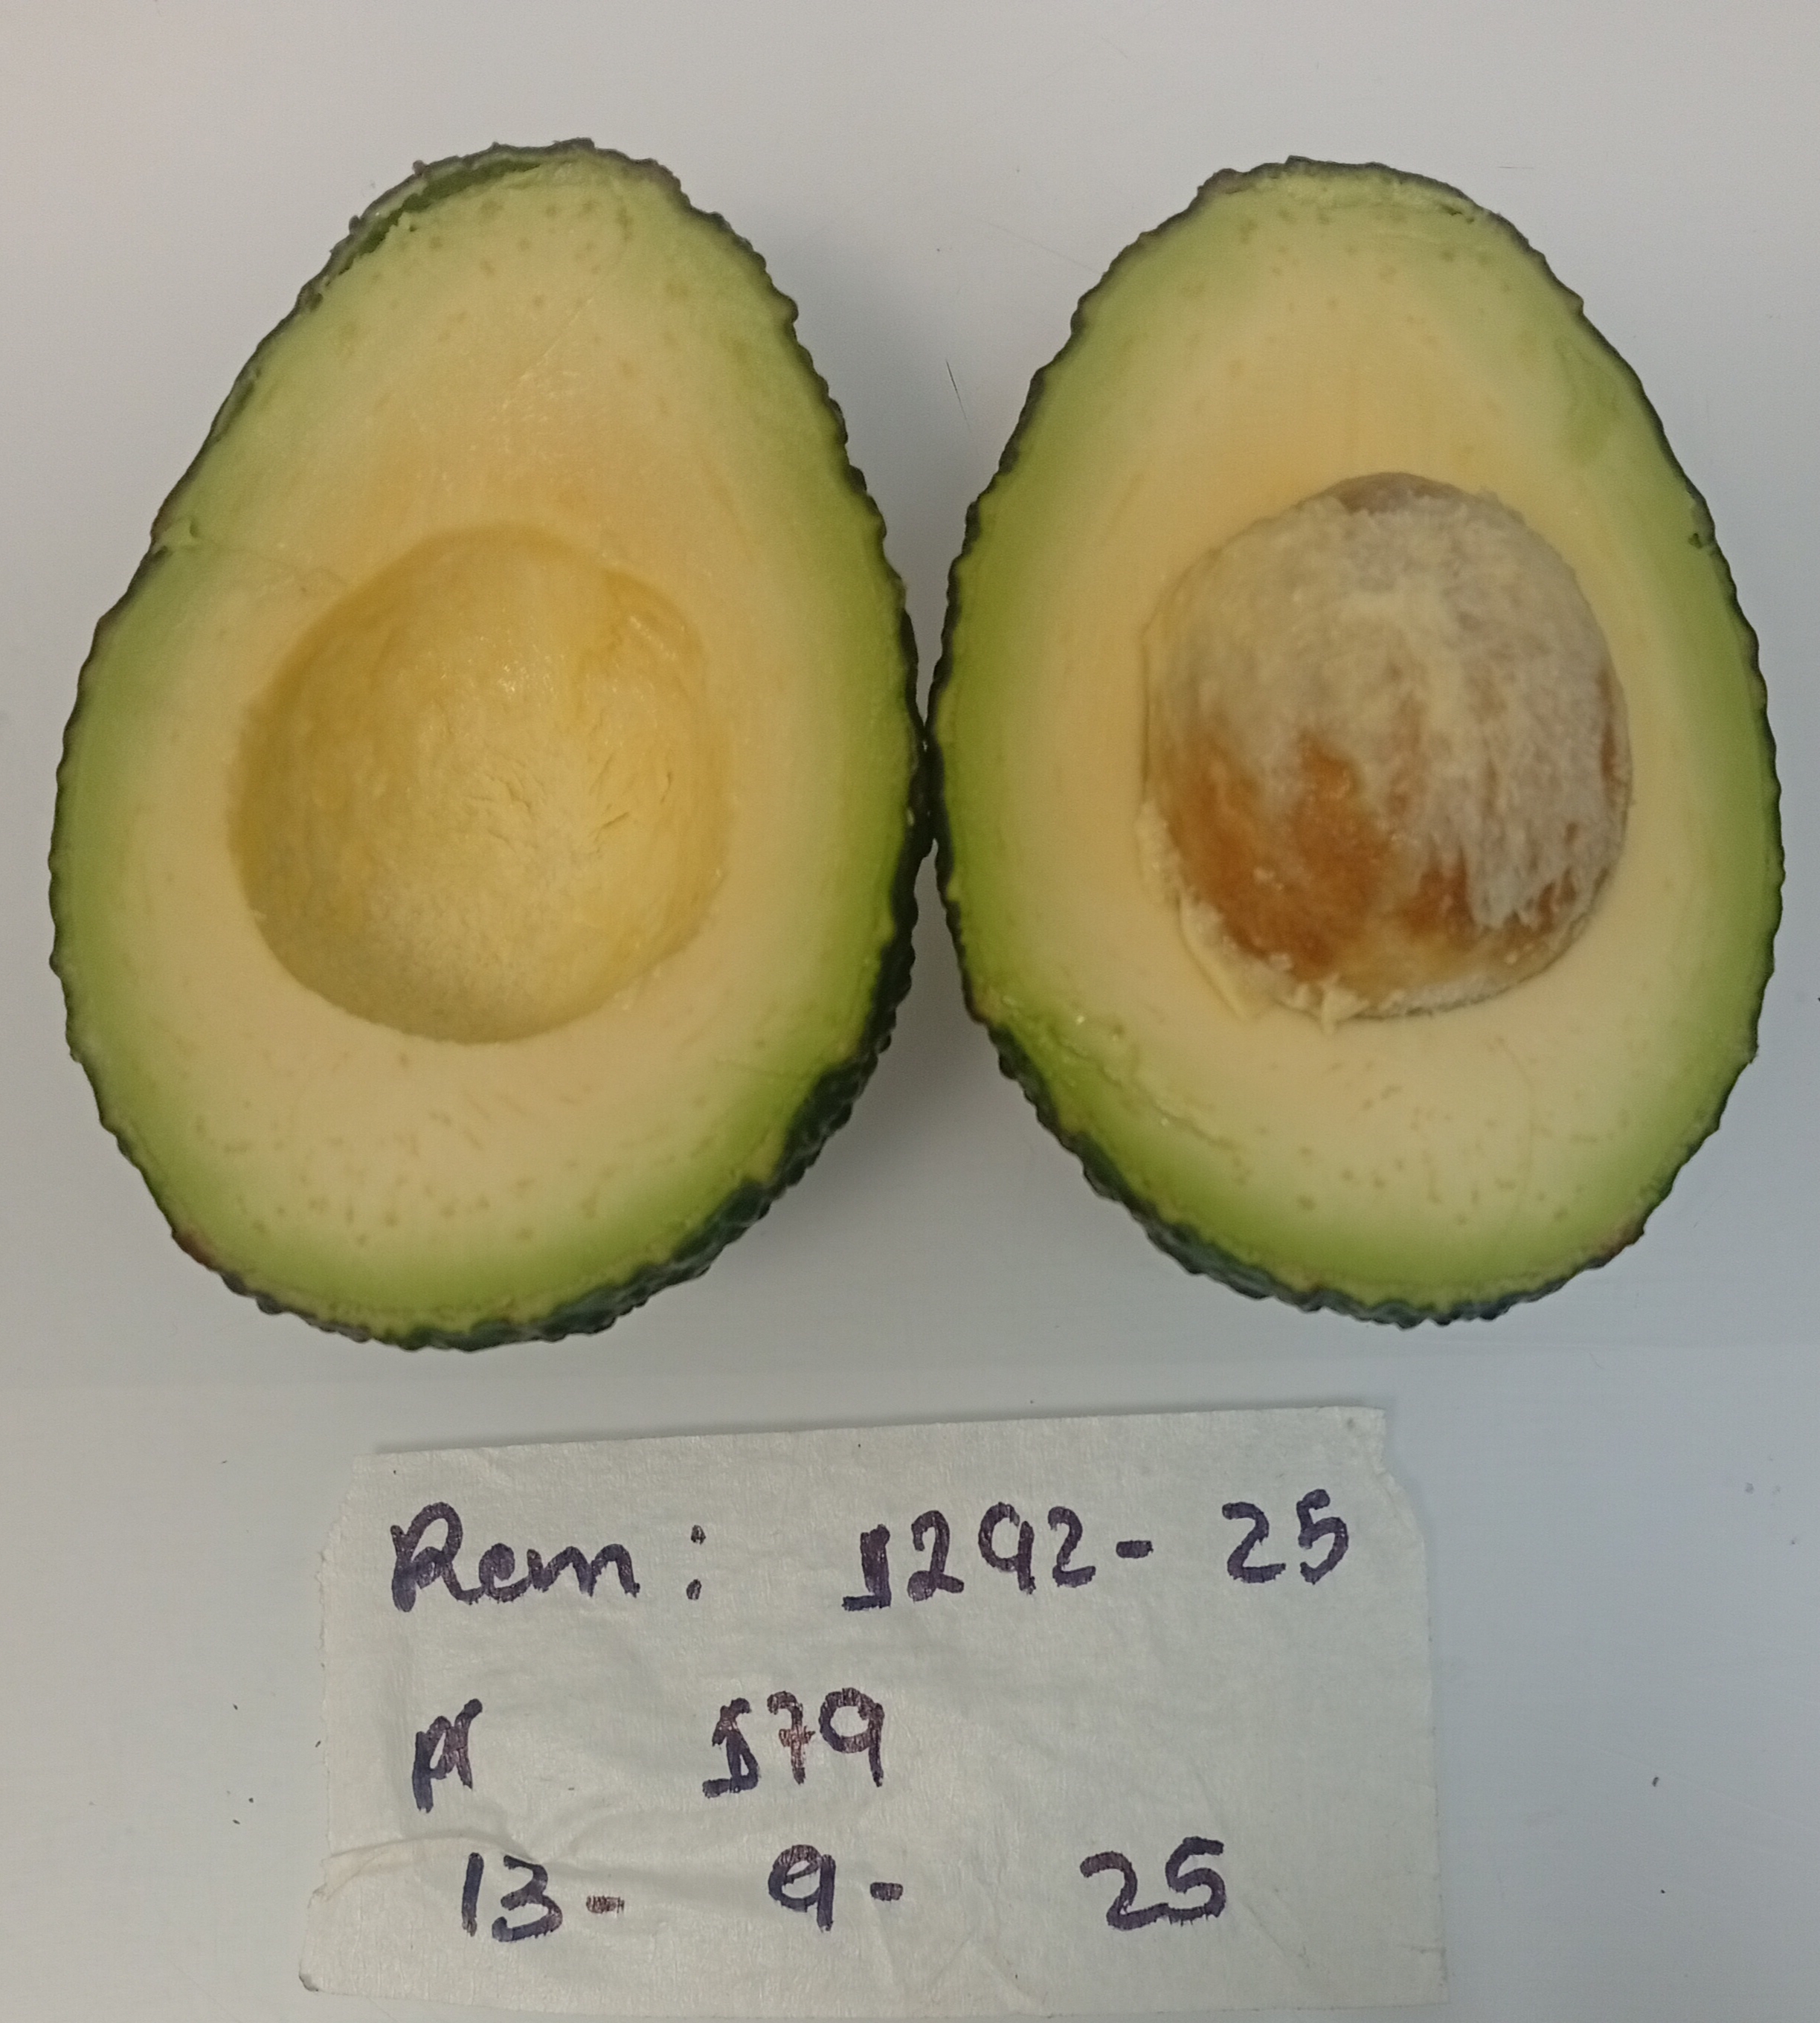 Rem: 5292-25
P 579
13-9-25